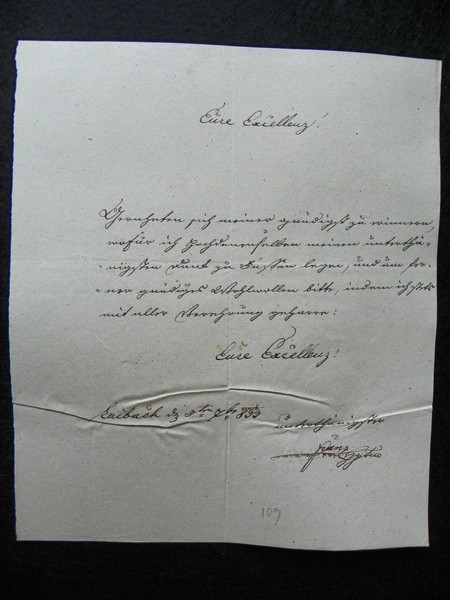 Eure Excellenz!
Geruheten sich meiner gnädigst zu erinnern,
wofür ich Hochdenenselben meinen unterthä-
nigsten Dank zu Füssen legen, und um fer-
ner gnädiges Wohlwollen bitte, indem ich stets
mit aller Verehrung geharre:
Eure Excellenz!
Laibach d 3ten 7br 833
unterthänigster
Franz
107